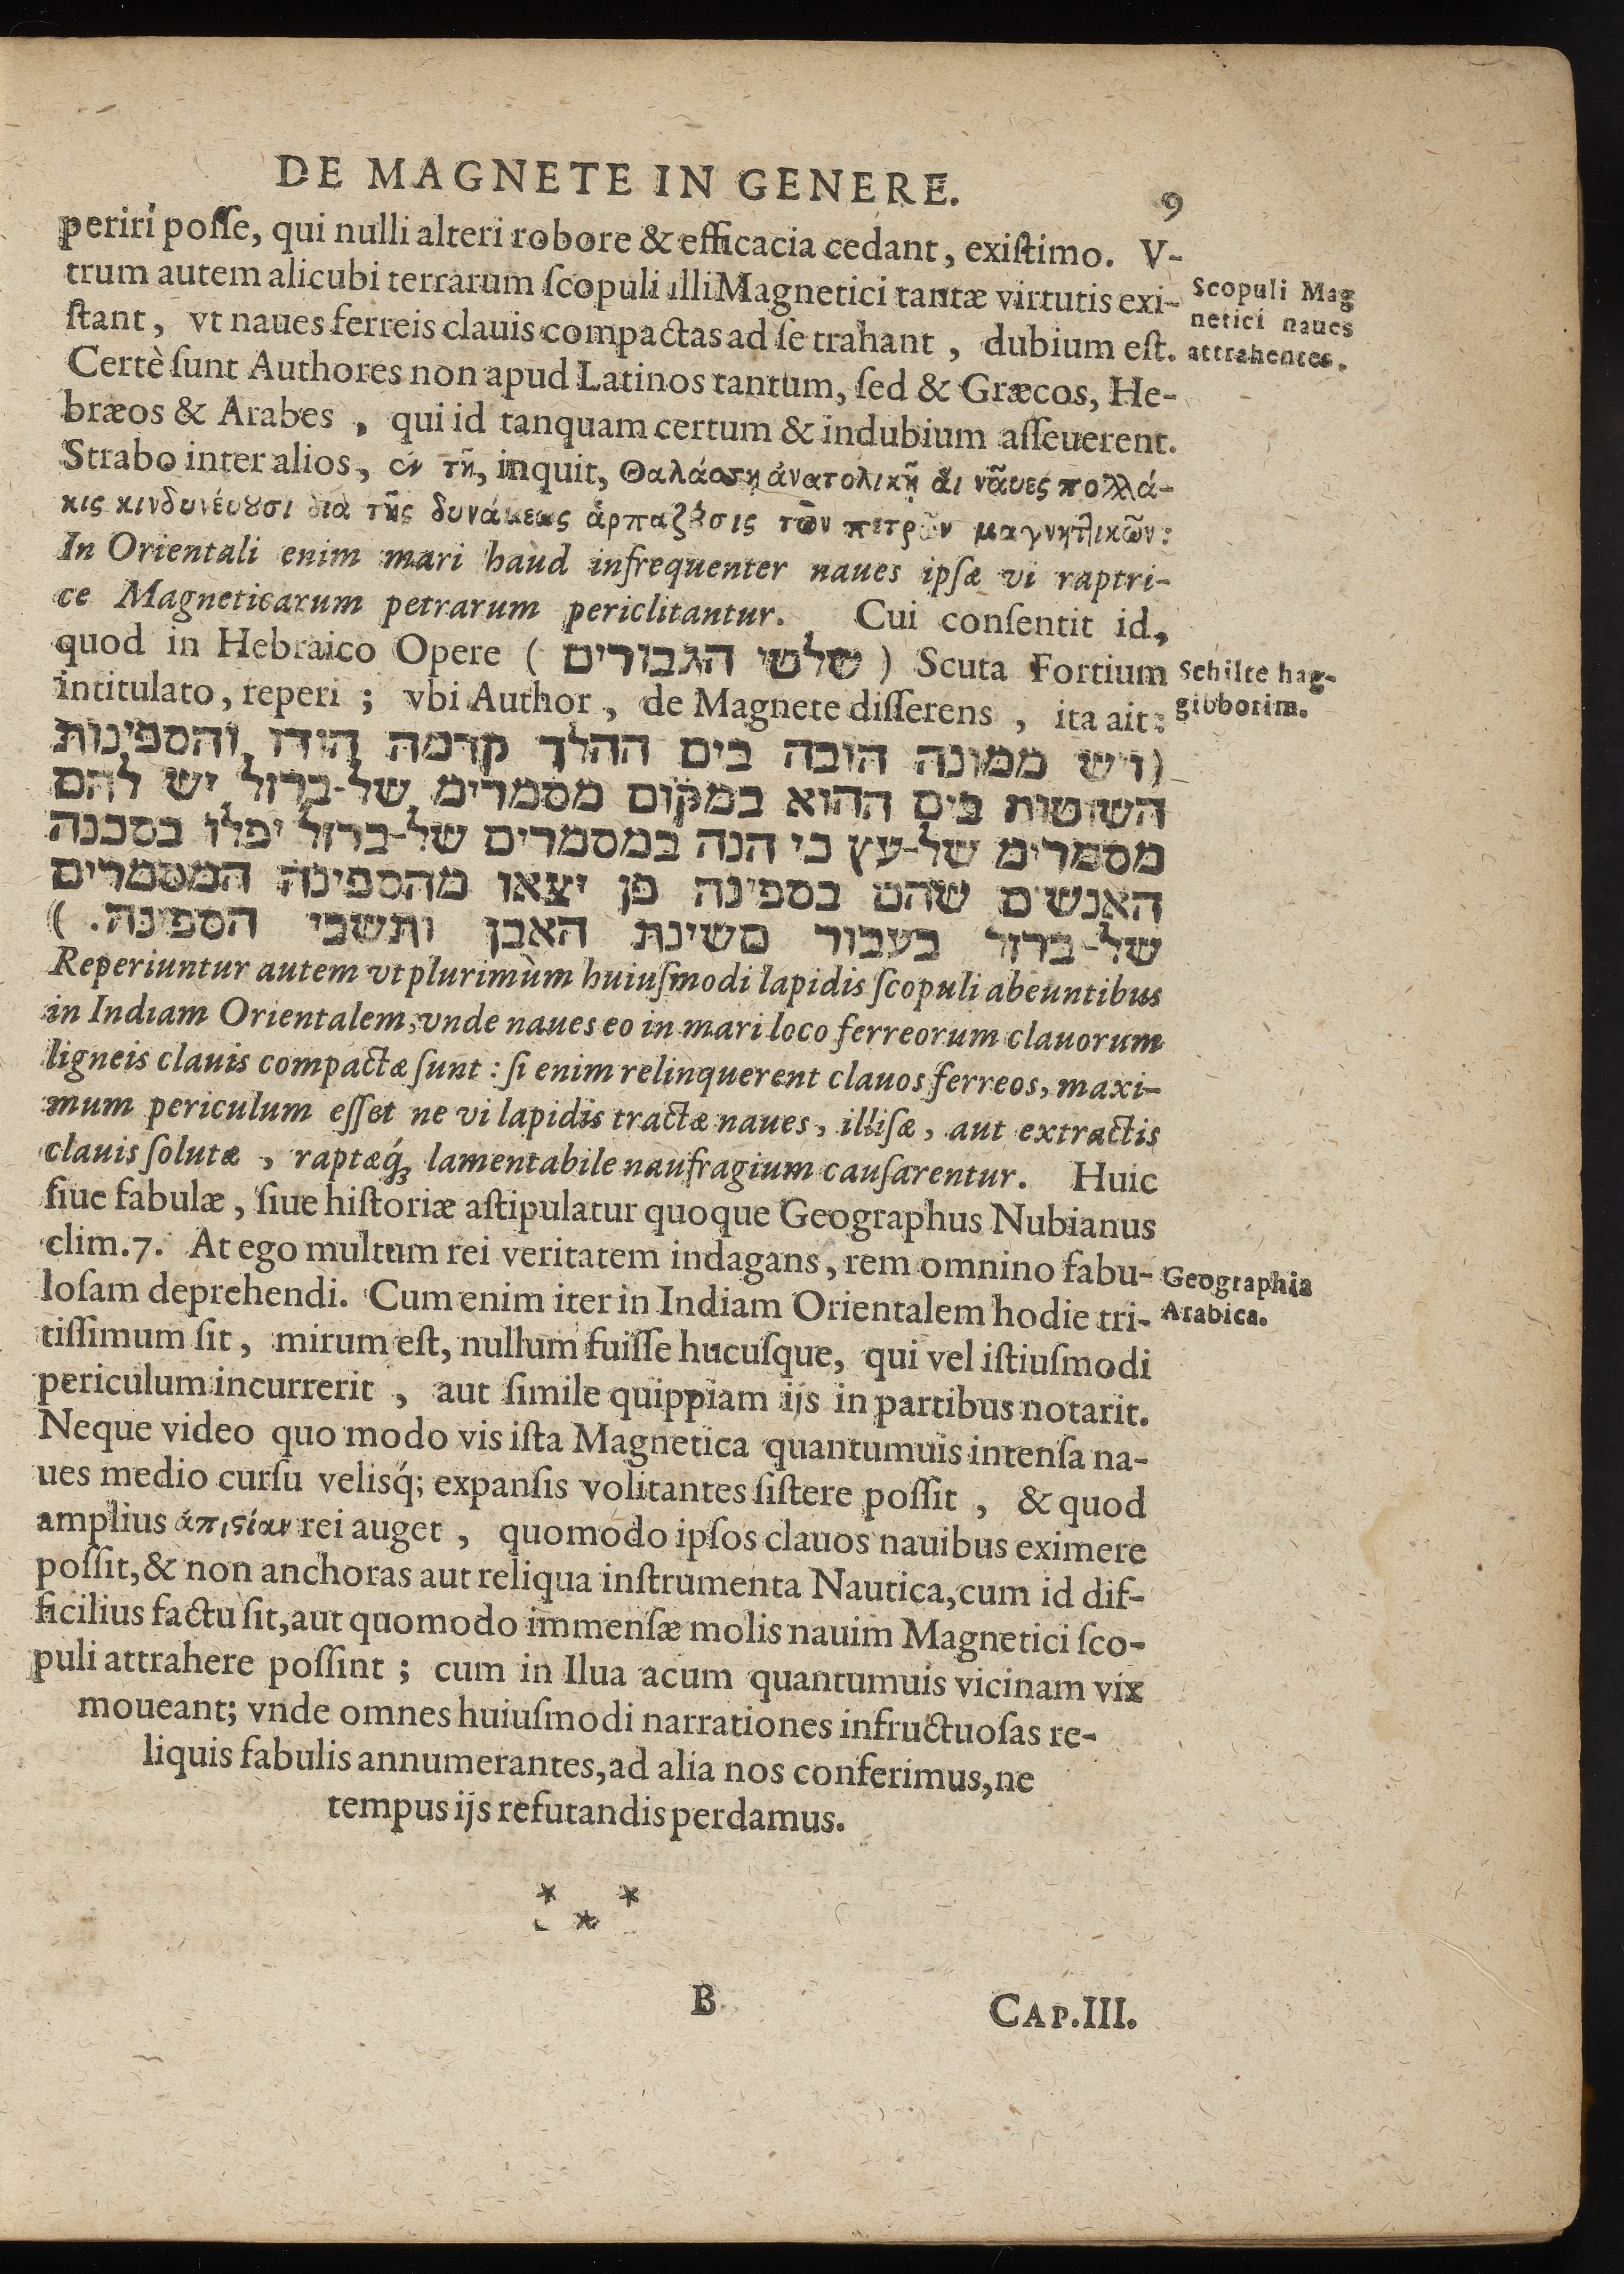 DE MAGNETE IN GENERE.
9
periri poſſe, qui nulli alteri robore & efficacia cedant, exiſtimo. V-
trum autem alicubi terrarum ſcopuli illi Magnetici tantæ virtutis exi-
ſtant, vt naues ferreis clauis compactas ad ſe trahant, dubium eſt.
Scopuli Mag
netici naues
attrahentes.
Certè ſunt Authores non apud Latinos tantum, ſed & Græcos, He-
bræos & Arabes, qui id tanquam certum & indubium aſſeuerent.
Strabo inter alios, ἐν τῆ, inquit, Θαλάσση ἀνατολικῆ ἁι νᾶυες πολλά-
κις κινδυνέυουσι δια τῆς δυνάμεως ἁρπαζέσις τῶν πετρῶν μαγνητικῶν:
In Orientali enim mari haud infrequenter naues ipſæ vi raptri-
ce Magneticarum petrarum periclitantur. Cui conſentit id,
quod in Hebraico Opere (שלטי הגבורים) Scuta Fortium
Schilte hag-
gibborim.
intitulato, reperi; vbi Author, de Magnete diſſerens, ita ait:
(ויש ממונה הובה בים ההלך קדמה הודו והספינות
השוטות בים ההוא במקום מסמרים של-ברזל יש להם
מסמרים של-עץ כי הנה במסמרים של-ברזל יפלו בסכנה
האנשים שהם בספינה פן יצאו מהספינה המסמרים
של-ברזל בעבור משינת האבן ותשבי הספינה.)
Reperiuntur autem vt plurimùm huiuſmodi lapidis ſcopuli abeuntibus
in Indiam Orientalem, vnde naues eo in mari loco ferreorum clauorum
ligneis clauis compactæ ſunt: ſi enim relinquerent clauos ferreos, maxi-
mum periculum eſſet ne vi lapidis tractæ naues, illiſæ, aut extractis
clauis ſolutæ, raptæq́; lamentabile naufragium cauſarentur. Huic
ſiue fabulæ, ſiue hiſtoriæ aſtipulatur quoque Geographus Nubianus
clim. 7. At ego multum rei veritatem indagans, rem omnino fabu-
Geographia
Arabica.
loſam deprehendi. Cum enim iter in Indiam Orientalem hodie tri-
tiſſimum ſit, mirum eſt, nullum fuiſſe hucuſque, qui vel iſtiuſmodi
periculum incurrerit, aut ſimile quippiam ijs in partibus notarit.
Neque video quo modo vis iſta Magnetica quantumuis intenſa na-
ues medio curſu velisq́; expanſis volitantes ſiſtere poſſit, & quod
amplius ἀπιϛίαν rei auget, quomodo ipſos clauos nauibus eximere
poſſit, & non anchoras aut reliqua inſtrumenta Nautica, cum id dif-
ficilius factu ſit, aut quomodo immenſæ molis nauim Magnetici ſco-
puli attrahere poſſint; cum in Ilua acum quantumuis vicinam vix
moueant; vnde omnes huiuſmodi narrationes infructuoſas re-
liquis fabulis annumerantes, ad alia nos conferimus, ne
tempus ijs refutandis perdamus.
* *
*
B
CAP. III.